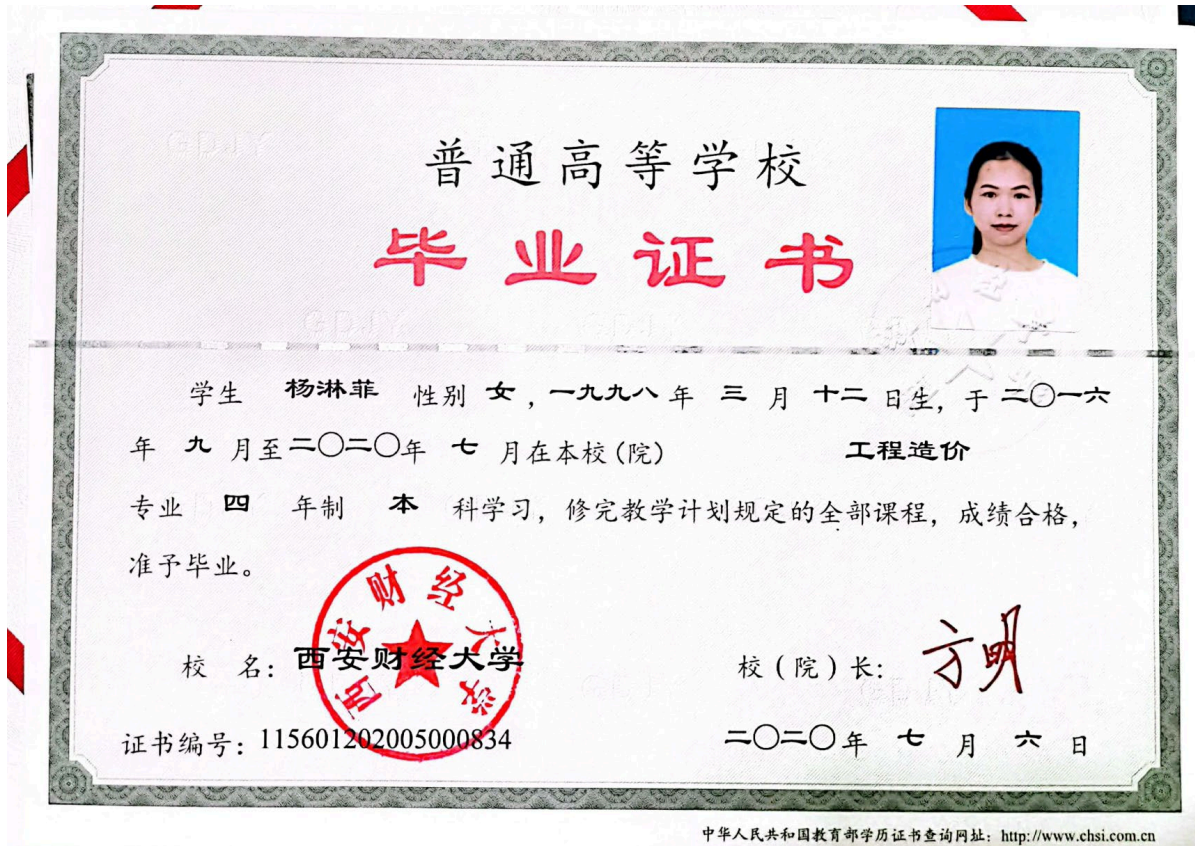 普通高等学校
毕业证书
学生 杨淋菲 性别 女，一九九八年 三 月 十二 日生，于 二〇一六
年 九 月至二〇二〇年 七 月在本校(院) 工程造价
专业 四 年制 本 科学习，修完教学计划规定的全部课程，成绩合格，
准予毕业。
西安财经大学
校 名：西安财经大学 校（院）长：方明
证书编号：115601202005000834 二〇二〇年 七 月 六 日
中华人民共和国教育部学历证书查询网址：http://www.chsi.com.cn